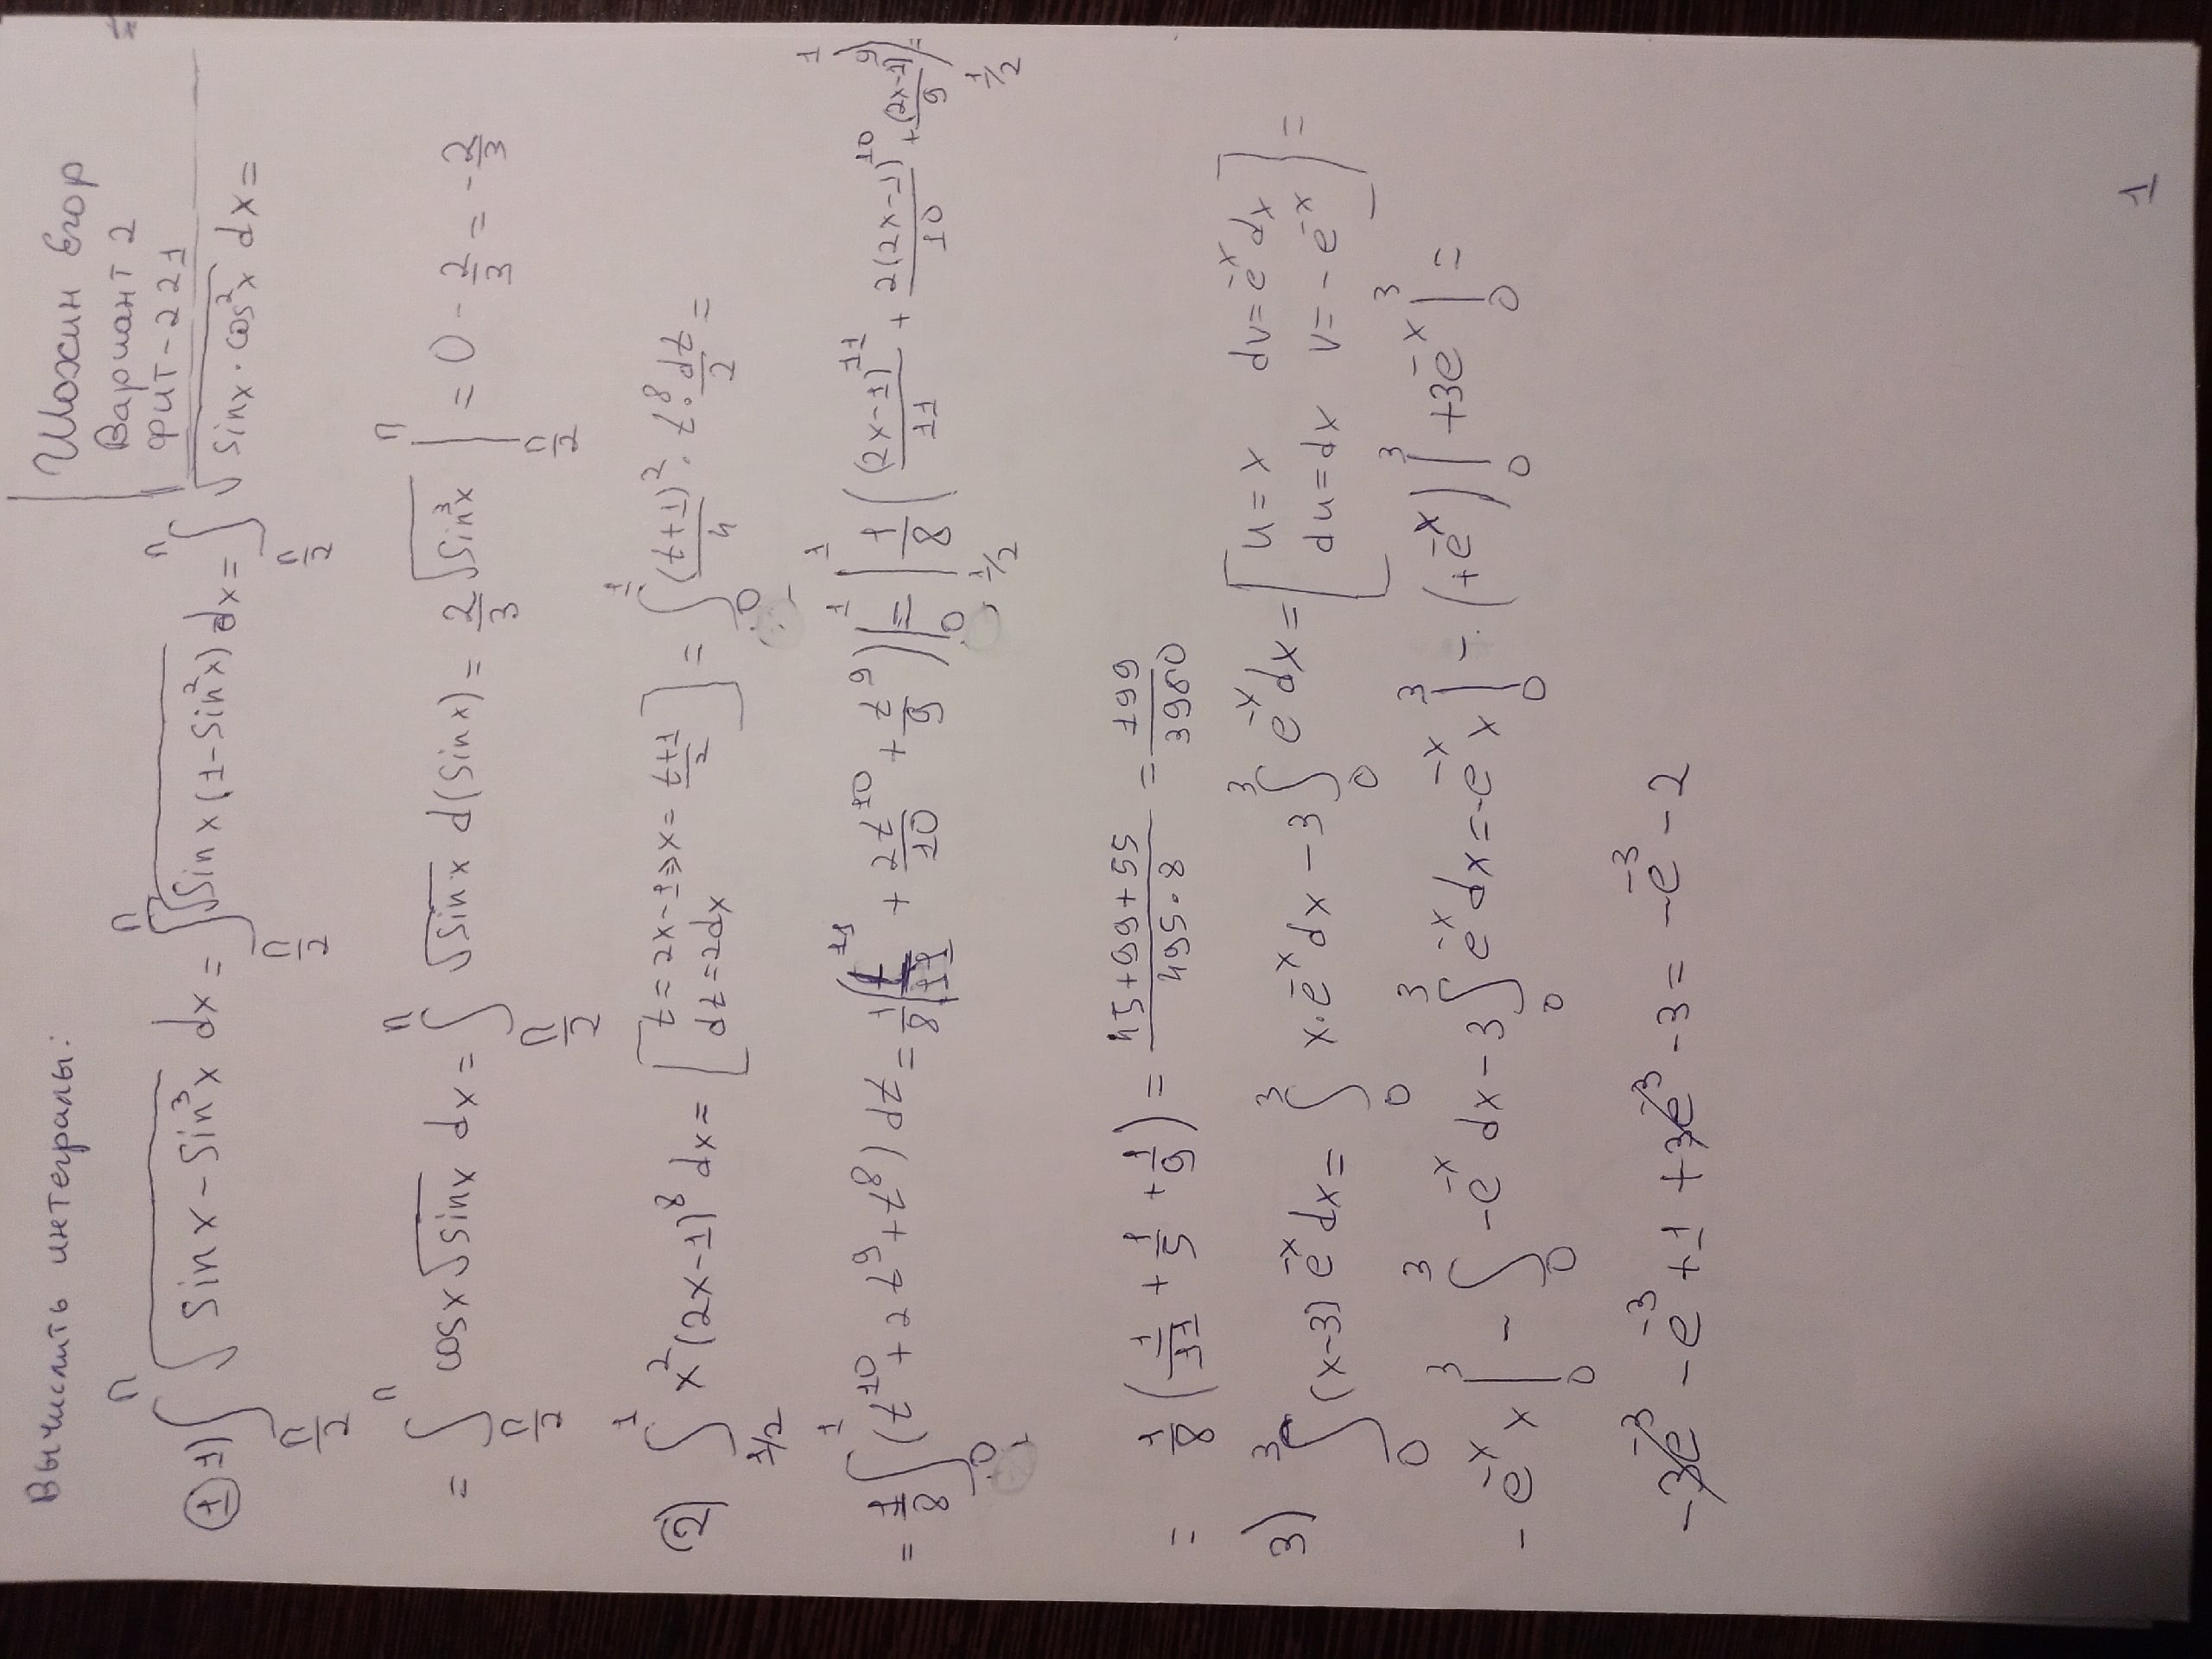 Вычислить интегралы:
Шохин Егор
Вариант 2
ФИТ-221
① 1) ∫_{π/2}^{π} √(sin x - sin³x) dx = ∫_{π/2}^{π} √(sin x (1 - sin²x)) dx = ∫_{π/2}^{π} √(sin x · cos²x) dx =
= ∫_{π/2}^{π} cos x √(sin x) dx = ∫_{π/2}^{π} √(sin x) d(sin x) = 2/3 √(sin³x) |_{π/2}^{π} = 0 - 2/3 = -2/3
2) ∫_{1/2}^{1} x²(2x-1)⁸ dx = [t = 2x-1 ⇒ x = (t+1)/2
dt = 2dx] = ∫_{0}^{1} (t+1)²/4 · t⁸ · dt/2 =
= 1/8 ∫_{0}^{1} (t¹⁰ + 2t⁹ + t⁸) dt = 1/8 (t¹¹/11 + 2t¹⁰/10 + t⁹/9) |_{0}^{1} = |_{1/2}^{1} 1/8 ((2x-1)¹¹/11 + 2(2x-1)¹⁰/10 + (2x-1)⁹/9) |_{1/2}^{1} =
= 1/8 (1/11 + 1/5 + 1/9) = (45+99+55)/(495·8) = 199/3960
3) ∫_{0}^{3} (x-3) e^{-x} dx = ∫_{0}^{3} x·e^{-x} dx - 3 ∫_{0}^{3} e^{-x} dx = [u = x dv = e^{-x} dx
du = dx v = -e^{-x}] =
-e^{-x} x |_{0}^{3} - ∫_{0}^{3} -e^{-x} dx - 3 ∫_{0}^{3} e^{-x} dx = -e^{-x} x |_{0}^{3} - (+e^{-x}) |_{0}^{3} + 3e^{-x} |_{0}^{3} =
-3e^{-3} - e^{-3} + 1 + 3e^{-3} - 3 = -e^{-3} - 2
1